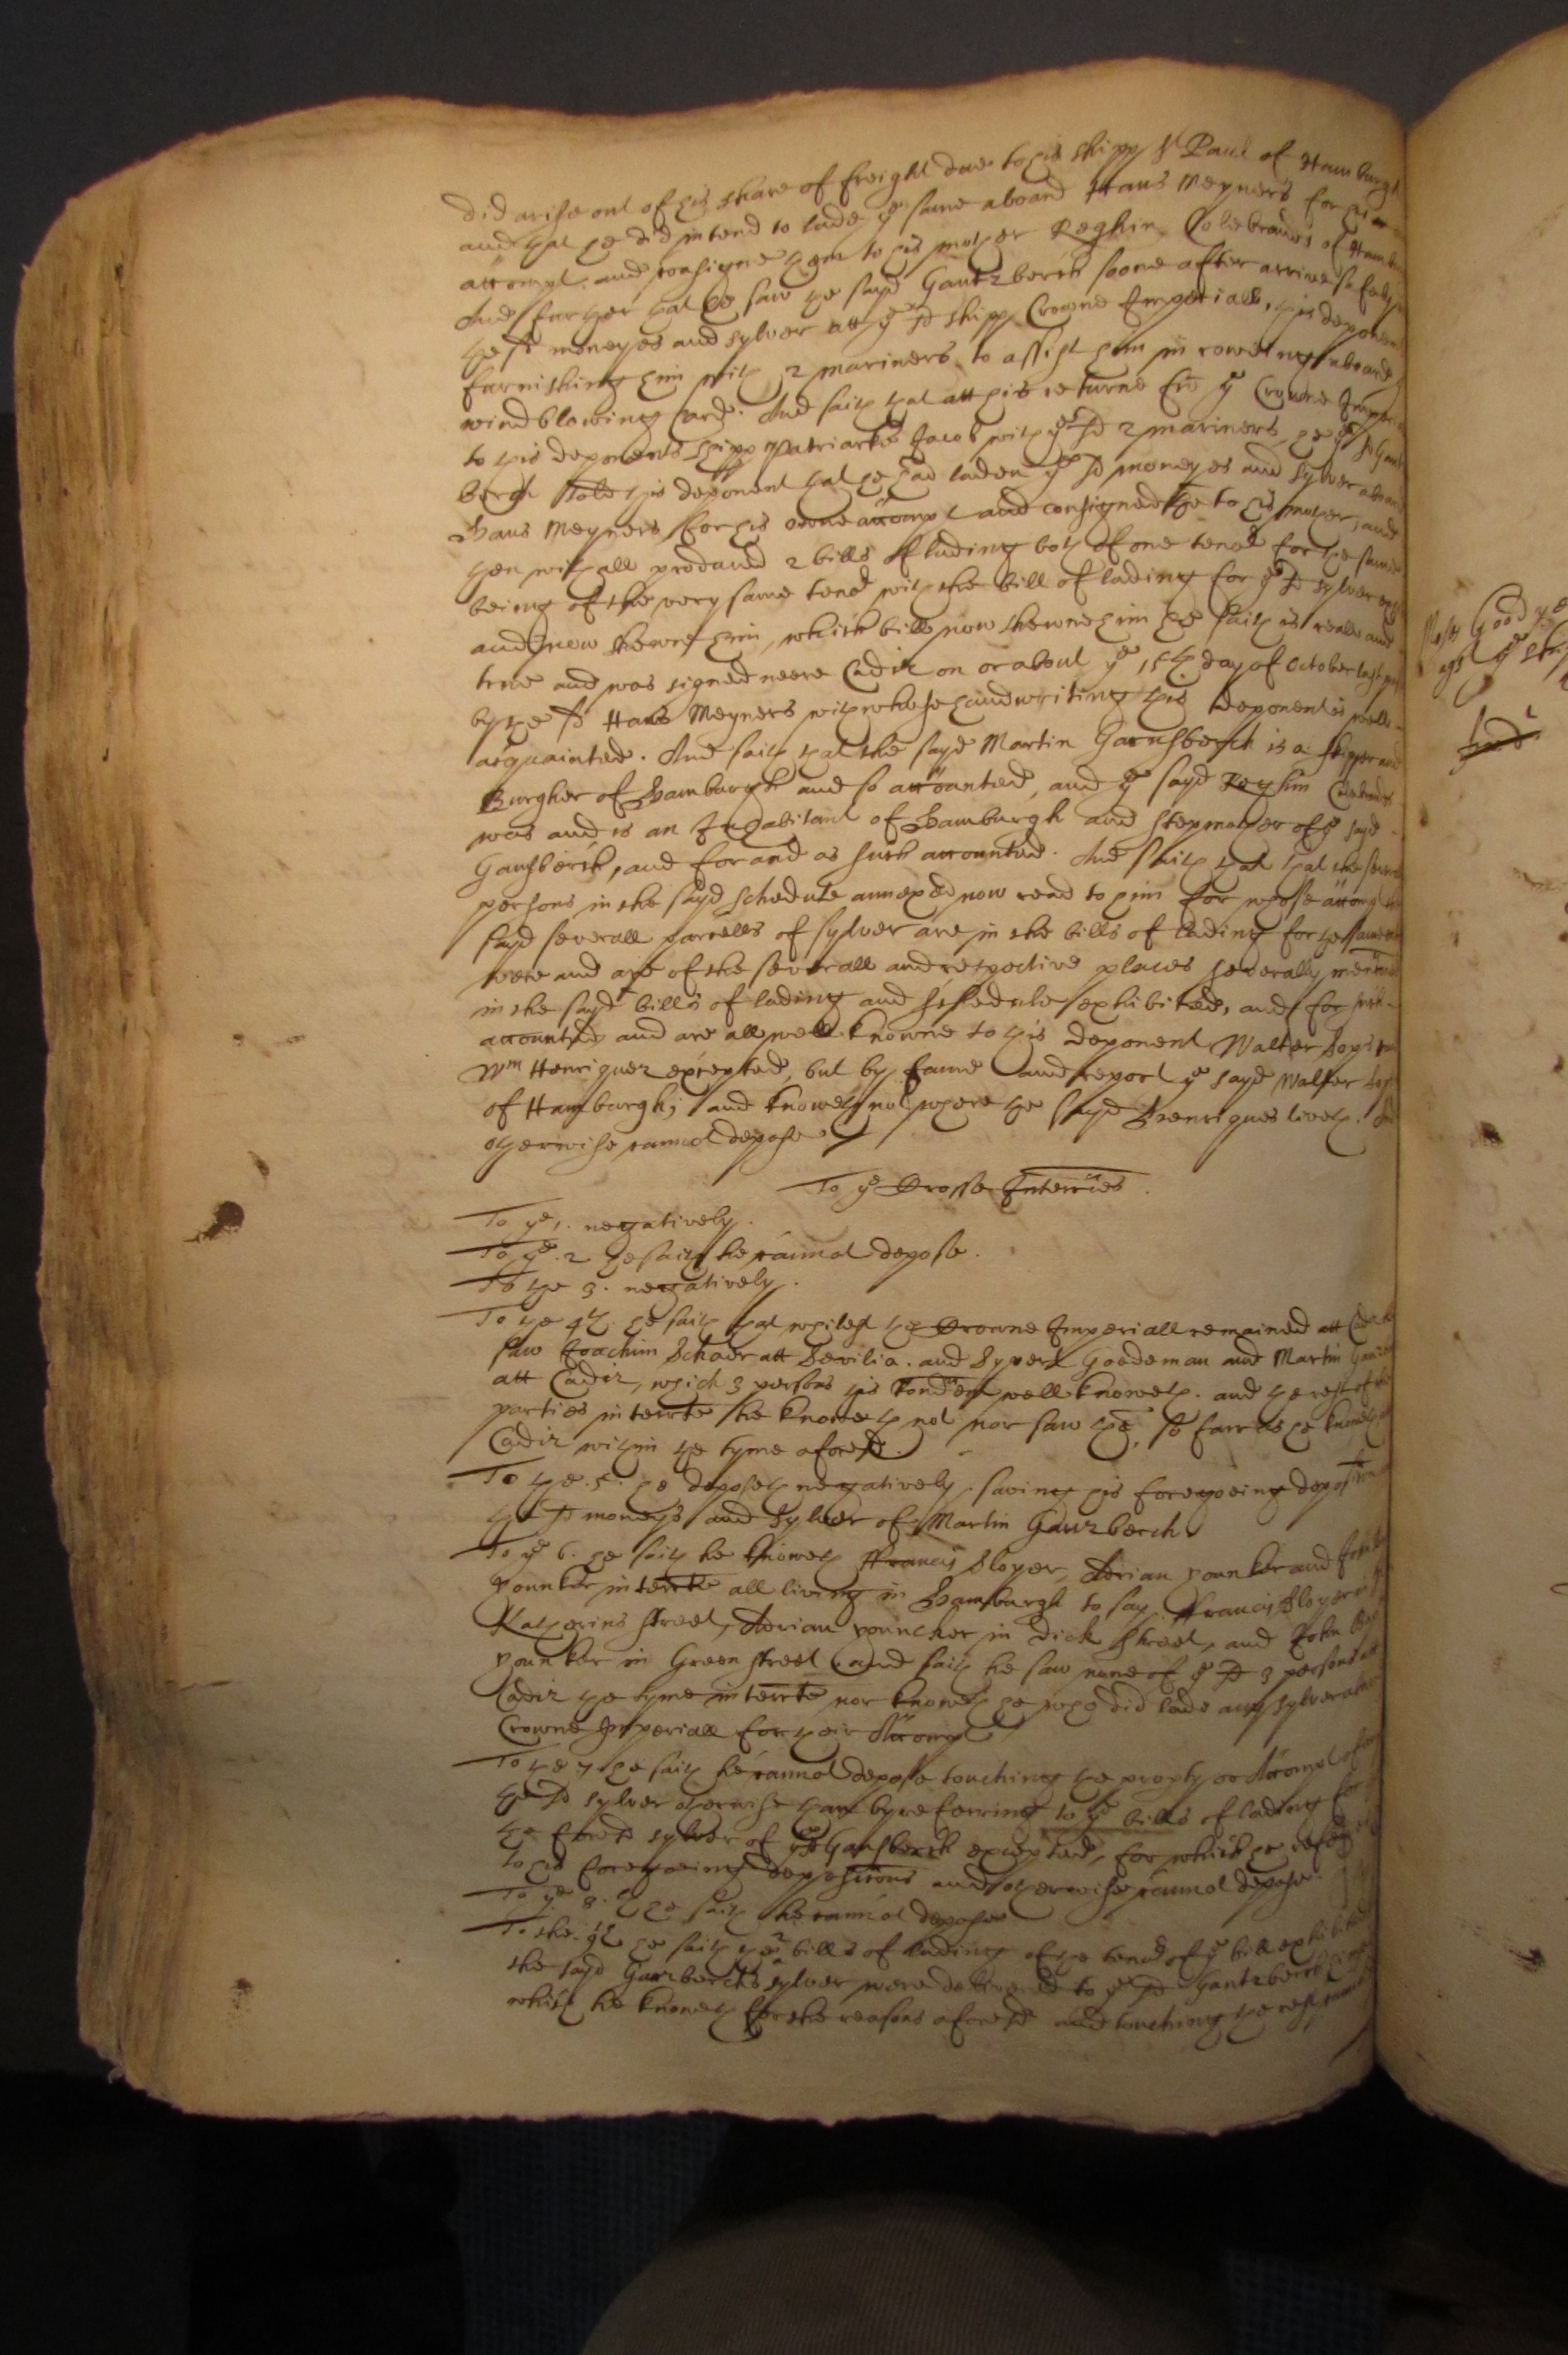 did arise out of his share of freight due to his shipp St Paul of Hamburgh
and that he did intend to lade ye same aboard Hans Meyners for his
accompt, and consigne them to his mother Reghin Colebrants of
And further that he saw the sayd Gantzberch soone after arrive safely
the sd moneyes and sylver att ye sd shipp Crowne Imperiall, this deponent
furnishing him with 2 mariners to assist him in roweing aboard
wind blowing hard. And saith that att his returne frō ye Crowne
to this deponents shipp Patriarke Jacob with ye sd 2 mariners, he ye sd
berch Tolde this deponent that he had laden ye sd moneyes and sylver aboard
Hans Meyners for his owne accompt and consigned the to his mother, and
then withall produced 2 bills of lading both of one tenor for the same
being of the very same tenor with the bill of lading for ye sd sylver
and now shewne him, which bill now shewne him he saith is reall and
true and was signed neere Cadiz on or about ye 15th day of October last past
by the sd Hans Meyners with whose handwriting this deponent is well
acquainted. And saith that the sayd Martin Gansberch is a skipper and
Burgher of Hamburgh and so accounted, and ye sayd Reghin
was and is an Inhabitant of Hamburgh and stepmother of ye sayd
Gansberch, and for and as such accounted. And saith that that the severall
persons in the sayd schedule annexed now read to him for whose accompt the
sayd severall parcells of sylver are in the bills of lading for the same
were and are of the severall and respective places severally
in the sayd bills of lading and schedule exhibited, and for such
accounted and are all well knowne to this deponent Walter
Wm Henriquez excepted, but by fame and report ye sayd Walter
of Hamburgh; and knoweth not where the sayd Henriques liveth.
otherwise cannot depose
To ye Crosse Interries.
To ye 1. negatively.
To ye. 2 he saith he cannot depose.
To the 3. negatively.
To the 4th. he saith that whilest the Crowne Imperiall remained att
saw Joachim Schaer att Sevilia. and Syvert Goedeman and Martin
att Cadiz, which 3 persons this rendent well knoweth. and the rest of the
parties interrte he knoweth not nor saw thē, so farr as he knoweth att
Cadiz within the tyme aforesd.
To the. 5. he deposeth negatively. saving his foregoeing deposition
the sd moneys and sylver of Martin Ganzberch.
To ye 6. he saith he knoweth ffrancis Sloyer, Adrian younker and
younker interrte all living in Hamburgh to say ffrancis Sloyer
Katherins street, Adrian youncker in Dick street, and John
younker in Green street and saith he saw none of ye sd 3 persons att
Cadiz the tyme interrte nor knoweth he who did lade any sylver
Crowne Imperiall for their Accompt
To the 7 he saith he cannot depose touching the propty or Accompt of
the sd sylver otherwise than by referring to ye bills of lading for
the foresd sylver of ye sd Gansberch excepted, for which he
to his foregoeing depositions and otherwise cannot depose.
To ye 8th he saith he cannot depose
To the. 9th he saith the 2 bills of lading of the tenor of ye bill exhibited
the sayd Ganzberchs sylver were delivered to ye sd Gantzberch
which he knoweth for the reasons aforesd and touching the rest